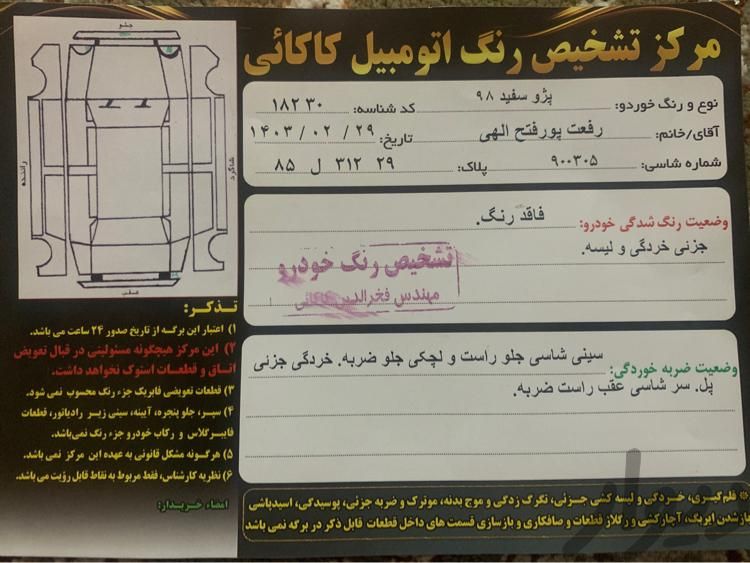 مرکز تشخیص رنگ اتومبیل کاکائی
نوع و رنگ خودرو: پژو سفید ۹۸ کد شناسه: ۱۸۲۳۰
آقای/خانم: رفعت پورفتح الهی تاریخ: ۱۴۰۳/۰۲/۲۹
شماره شاسی: ۹۰۰۳۰۵ پلاک: ۸۵ ل ۳۱۲ ۲۹
وضعیت رنگ شدگی خودرو: فاقد رنگ.
جزئی خردگی و لیسه.
تشخیص رنگ خودرو
مهندس فخرالدین کاکائی
وضعیت ضربه خوردگی: سینی شاسی جلو راست و لچکی جلو ضربه. خردگی جزئی
پل. سر شاسی عقب راست ضربه.
* قلم گیری، خردگی و لیسه کشی جزئی، تگرگ زدگی و موج بدنه، موترک و ضربه جزئی، پوسیدگی، اسیدپاشی
بازشدن ایربگ، آچارکشی و رگلاژ قطعات و صافکاری و بازسازی قسمت های داخل قطعات قابل ذکر در برگه نمی باشد
جلو
راننده
شاگرد
عقب
تذکر:
۱) اعتبار این برگه از تاریخ صدور ۲۴ ساعت می باشد.
۲) این مرکز هیچگونه مسئولیتی در قبال تعویض
اتاق و قطعات استوک نخواهد داشت.
۳) قطعات تعویضی فابریک جزء رنگ محسوب نمی شود.
۴) سپر، جلو پنجره، آیینه، سینی زیر رادیاتور، قطعات
فایبرگلاس و رکاب خودرو جزء رنگ نمی‌باشد.
۵) هرگونه مشکل قانونی به عهده این مرکز نمی باشد.
۶) نظریه کارشناس، فقط مربوط به نقاط قابل رؤیت می باشد.
امضاء خریدار:
دیوار